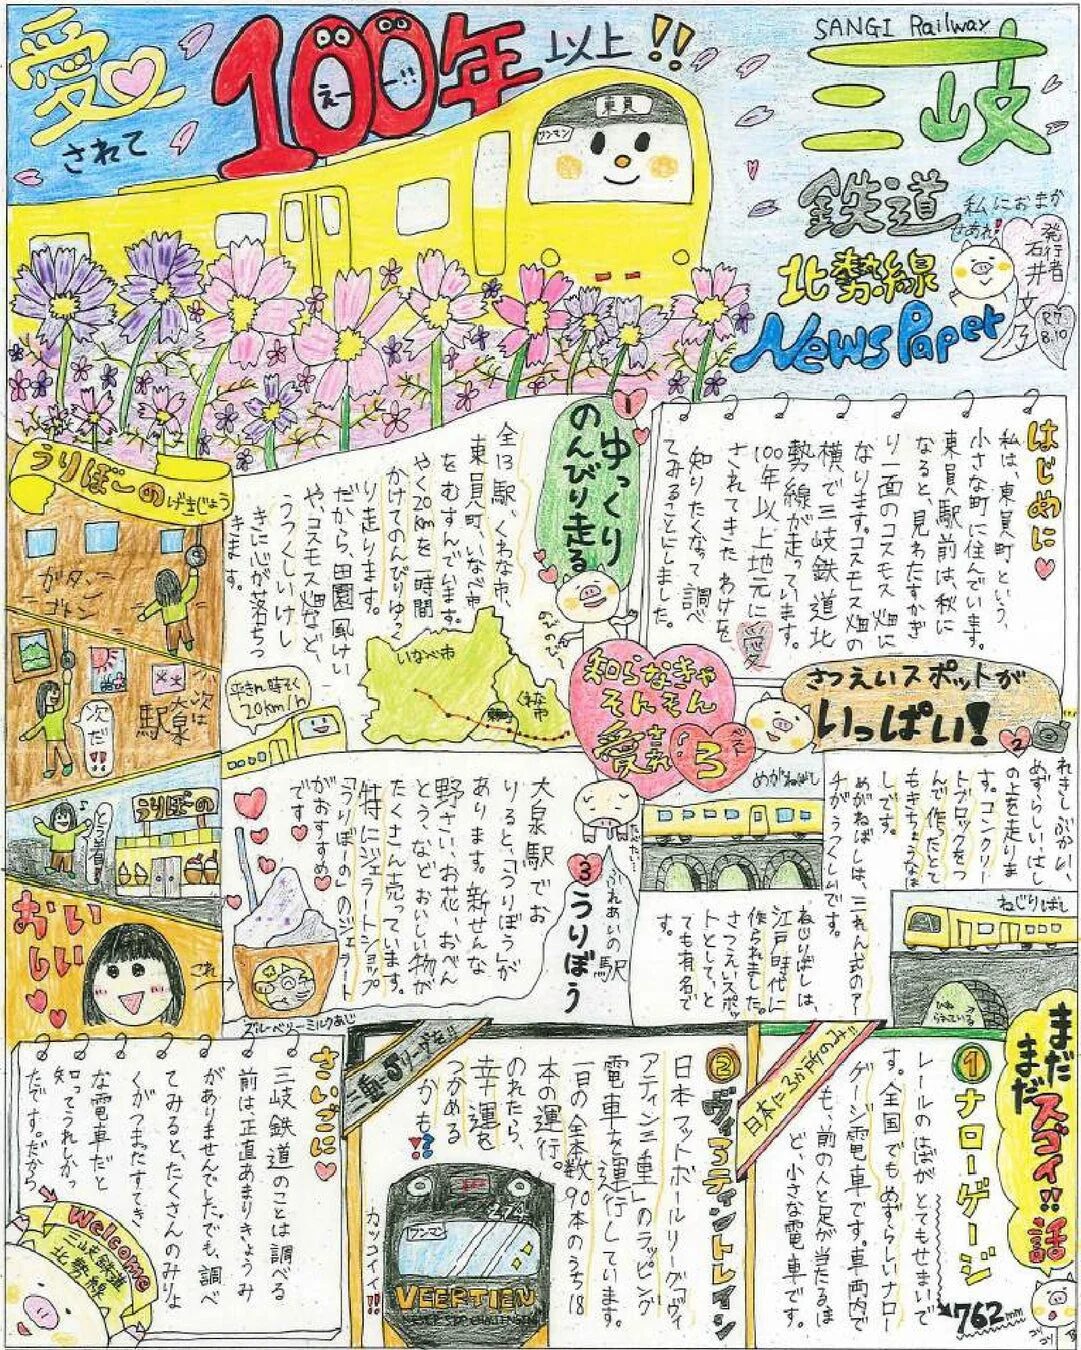 愛
されて
100年
以上!!
えーー!!
東員
ワンマン
SANGI Railway
三岐
鉄道
北勢線
NewsPaper
私におまか
せあれ!
発行者
石井文乃
R7.
8.10
はじめに
私は、東員町という、
小さな町に住んでいます。
東員駅前は、秋に
なると、見わたすかぎ
り一面のコスモス畑に
なります。コスモス畑の
横で三岐鉄道北
勢線が走っています。
100年以上地元に愛
されてきたわけを
知りたくなって調べ
てみることにしました。
1
ゆっくり
のんびり走る
全13駅、くわな市、
東員町、いなべ市
をむすんでいます。
やく20kmを一時間
かけてのんびりゆっく
り走ります。
だから、田園風けい
や、コスモス畑など、
うつくしいけし
きに心が落ちつ
きます。
いなべ市
東員町
くわな市
平きん時そく
20km/h
知らなきゃ
そんそん
愛され
ベスト
3
さつえいスポットが
いっぱい!
2
れきしぶかい、
めずらしい、はし
の上を走りま
す。コンクリー
トブロックをつ
んで作ったとて
もきちょうなは
しです。
めがねばしは、三れん式のアー
チがうつくしいです。
めがねばし
ねじりばしは、
江戸時代に
作られました。
さつえいスポッ
トとして、と
ても有名で
す。
ねじりばし
3
ふれあいの駅
うりぼう
大泉駅でお
りると、「うりぼう」が
あります。新せんな
野さい、お花、おべん
とう、などおいしい物が
たくさん売っています。
特にジェラートショップ
「うりぼーの」のジェラート
がおすすめ
です
ブルーベリーミルクあじ
うりぼーの
げきじょう
ガタン
ゴトン
次は
大泉
駅
次だ!!
うりぼーの
とう着!
おい
しい
これ
まだ
まだ
スゴイ!!話
1
ナローゲージ
レールのはばがとてもせまいで
す。全国でもめずらしいナロー
ゲージ電車です。車両内で
も、前の人と足が当たるほ
ど、小さな電車です。
762mm
日本に3か所のみ!!
2
ヴィアティントレイン
日本フットボールリーグ「ヴィ
アティン三重」のラッピング
電車を運行しています。
一日の全本数90本のうち18
本の運行。
のれたら、
幸運を
つかめる
かも!?
ワンマン
274
VEERTIEN
カッコイイ!!
さいごに
三岐鉄道のことは調べる
前は、正直あまりきょうみ
がありませんでした。でも、調べ
てみると、たくさんのみりょ
くがつまたすてき
な電車だと
知ってうれしかっ
たです。だから
Welcome
三岐鉄道
北勢線